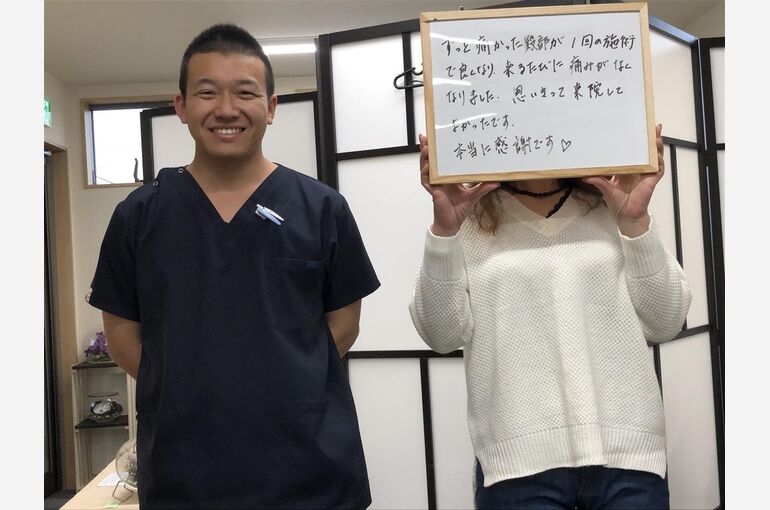 ずっと痛かった殿部が1回の施術
で良くなり、来るたびに痛みがなく
なりました。思いきって来院して
よかったです。
本当に感謝です♡